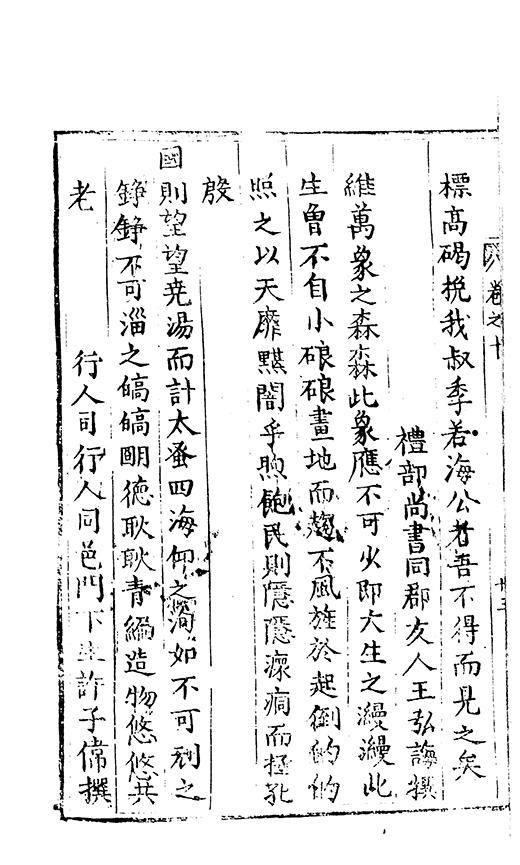 卷之十
廿三
標高碣挽我叔季若海公者吾不得而見之矣
禮部尚書同郡友人王弘誨撰
維萬象之森森此象應不可少即大生之漫漫此
生曾不自小硠硠畫地而趨不風旌於起倒的的
照之以天靡黮闇乎煦飽民則隱隱瘝痌而拯孔
殷
國則望望堯湯而計太蚤四海仰之洶如不可利之
錚錚不可淄之皜皜明德耿耿青編造物悠悠共
老
行人司行人同邑門下生許子偉撰